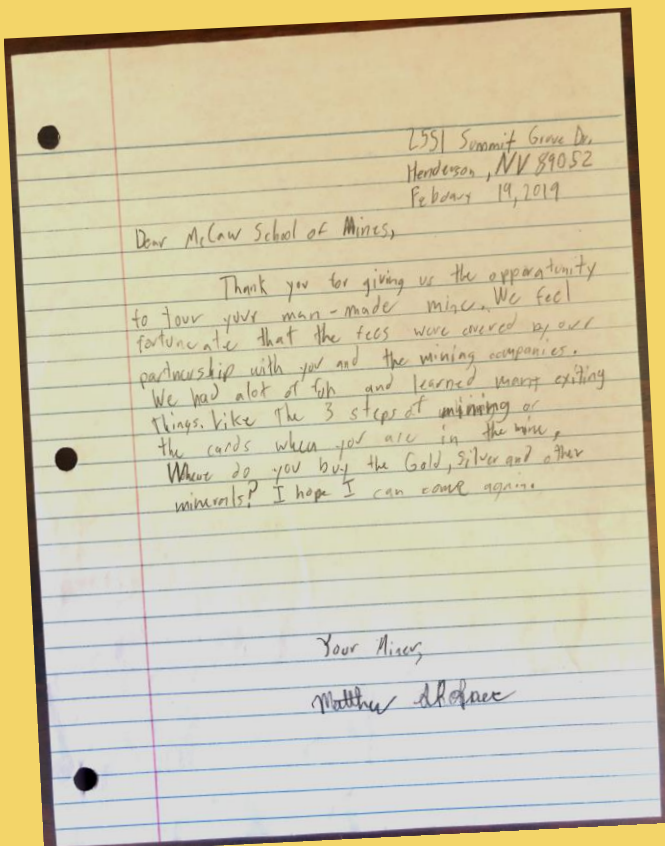 2551 Summit Grove Dr.
Henderson, NV 89052
Febuary 19, 2019
Dear McCaw School of Mines,
Thank you for giving us the opparatunity
to tour your man-made mine. We feel
fortuneate that the fees were covered by our
partnership with you and the mining companies.
We had alot of fun and learned many exiting
things. Like The 3 steps of mining or
the cards when you are in the mine,
Where do you buy the Gold, Silver and other
minerals? I hope I can come again.
Your Miner,
Matthew